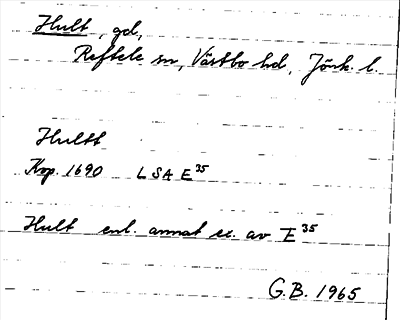 Hult, gd,
Reftele sn, Västbo hd, Jönk. l.
Hultt
Kop. 1690 LSA E 35
Hult enl. annat ex. av E 35
G.B. 1965